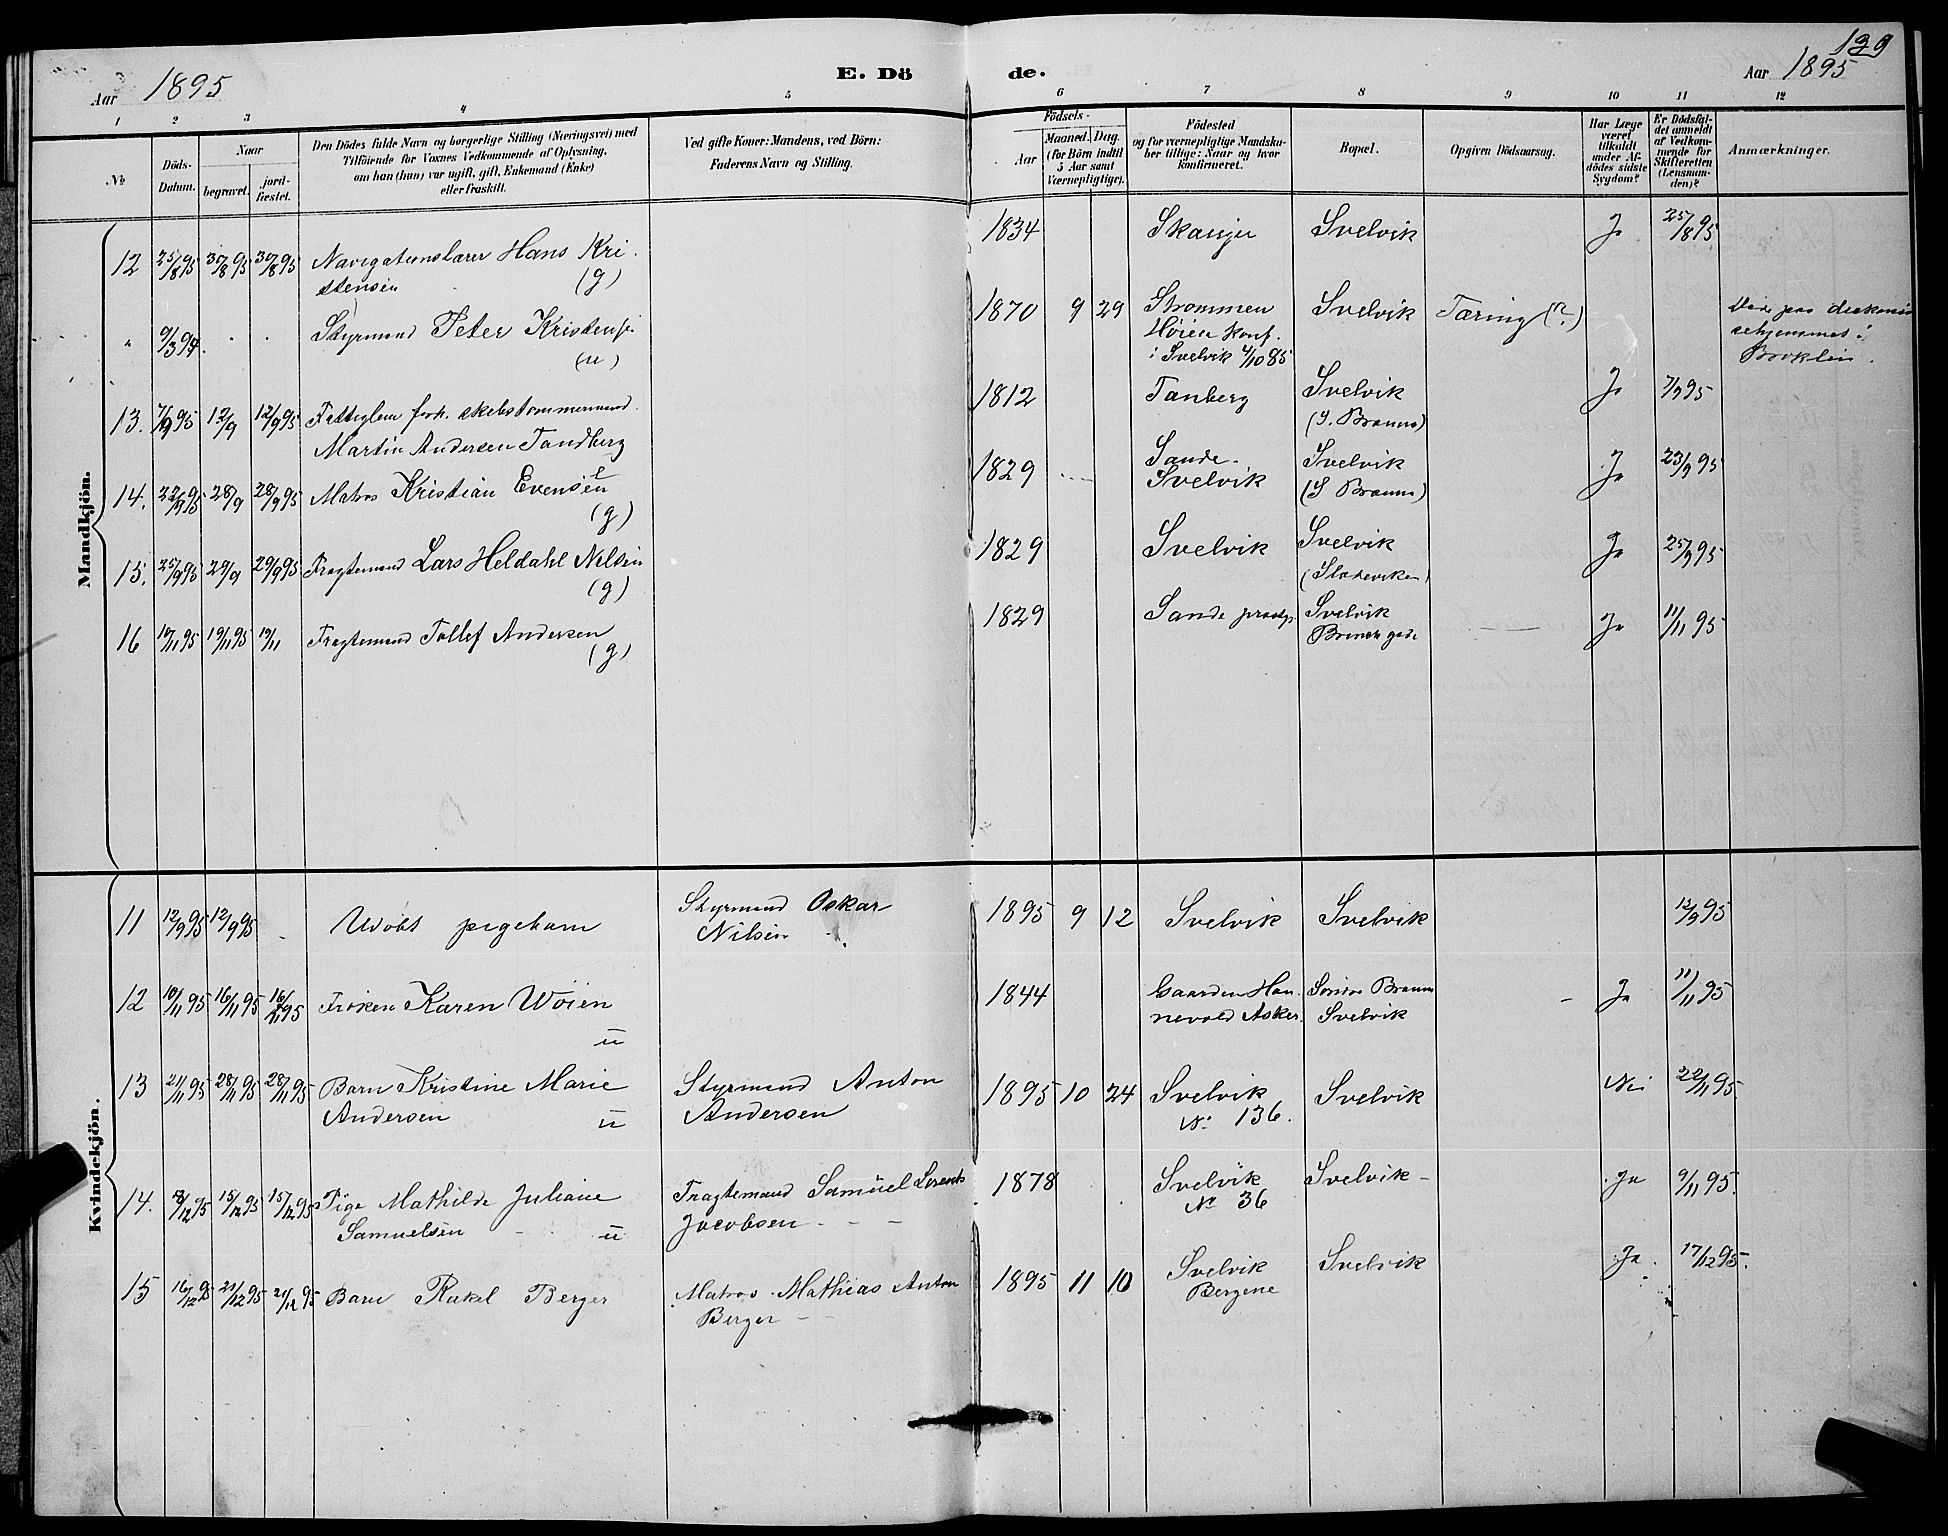 139
Aar 1895
E. Dö
de.
Aar 1895
1 2 3 4 5 6 7 8 9 10 11 12
No
Döds-
Datum.
Naar
begravet.
jord-
fæstet.
Den Dödes fulde Navn og borgerlige Stilling (Næringsvei) med
Tilföiende for Voxnes Vedkommende af Oplysning,
om han (hun) var ugift, gift, Enkemand (Enke)
eller fraskilt.
Ved gifte Koner: Mandens, ved Börn:
Faderens Navn og Stilling.
Födsels-
Aar
Maaned.
Dag.
(for Börn indtil
5 Aar samt
Værnepligtige).
Födested
og for værnepligtige Mandsku-
ber tillige: Naar og hvor
konfirmeret.
Bopæl.
Opgiven Dödsaarsag.
Har Læge
været
tilkaldt
under Af-
dödes sidste
Sygdom?
Er Dödsfal-
det anmeldt
af Vedkom-
mende for
Skifteretten
(Lensman-
den)?
Anmærkninger.
Mandkjön.
12 25/8 95 30/8 95 30/8 95 Navigationslærer Hans Kri-
stensen (g)
1834 Skanger Svelvik Ja 25/8 95
" 9/3 94. Styrmand Peter Kristensen
(u)
1870 9 29 Strommen Svelvik Tæring (?)
Höien Konf.
i Svelvik 4/10 85
i
Broklin.
13. 7/9 95 12/9 12/9 95 Fattiglem forh. skibstømmermand
Martin Andersen Tandberg
1812 Tanberg Svelvik Ja 7/9 95
(S. Brænna)
14. 22/9 95 28/9 28/9 95 Matros Kristian Evensen
(g)
1829 Sande- Svelvik Ja 23/9 95
Svelvik (S Brænna)
15. 25/9 95 29/9 29/9 95 Fragtemand Lars Heldahl Nilsen
(g)
1829 Svelvik Svelvik Ja 25/9 95
16 10/11 95 19/11 95 19/11 Fragtemand Tollef Andersen
(g)
1829 Sande Svelvik Ja 11/11 95
Kvindekjön.
11 12/9 95 12/9 95 Udöbt pigebarn Styrmand Oskar
Nilsen
1895 9 12 Svelvik Svelvik 13/9 95
12 10/11 95 16/11 95 16/11 95 Fröken Karen Woien
u
1844 Gaarden Han- Söndre Brænna Ja 11/11 95
nevold Asker. Svelvik
13 21/11 95 28/11 95 28/11 95 Barn Kristine Marie Styrmand Anton
Andersen u Andersen
1895 10 24 Svelvik Svelvik Nei 22/11 95
No 136.
14. 8/12 95 15/12 95 15/12 95 Pige Mathilde Juliane Fragtemand Samuel Lorents
Samuelsen u Jacobsen
1878 Svelvik Svelvik Ja 9/11 95.
No 36
15 16/12 95 21/12 95 21/12 95 Barn Rakel Berger Matros Mathias Anton
Berger
1895 11 10 Svelvik Svelvik Ja. 17/12 95.
Bergene